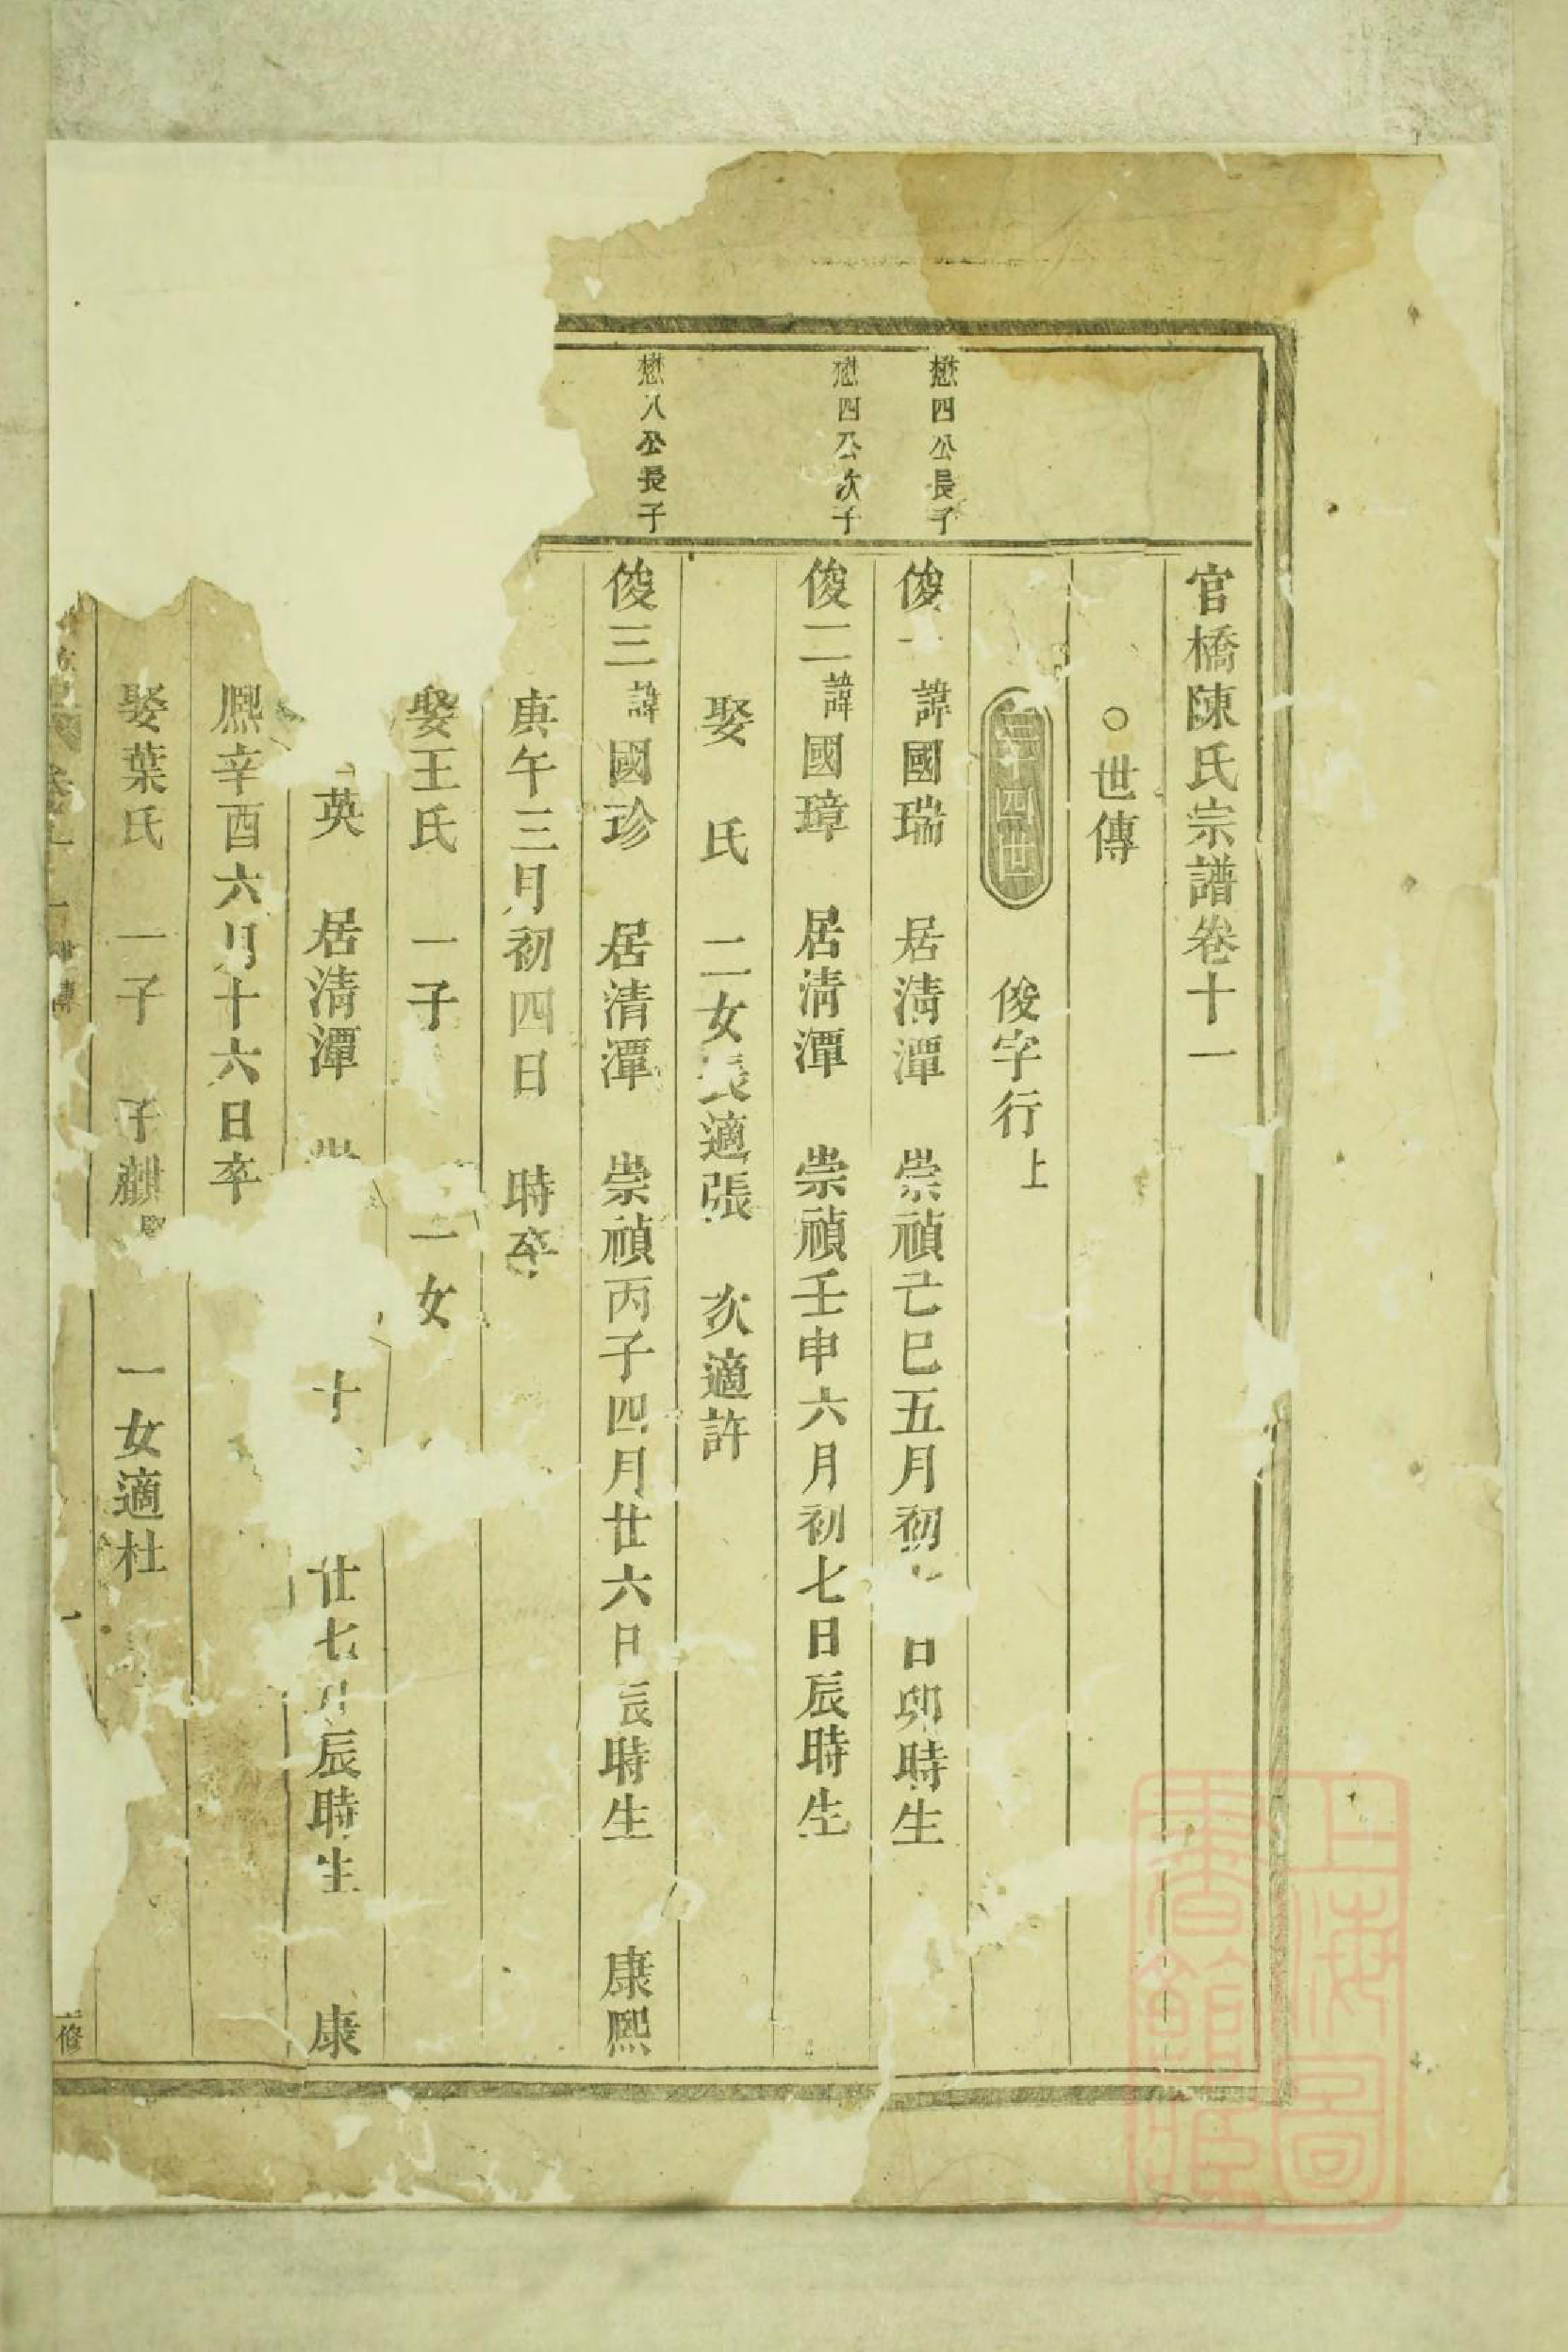 官橋陳氏宗譜卷十一
○世傳
二十四世 俊字行上
懋四公長子
俊一諱國瑞 居清潭 崇禎己巳五月初 日卯時生
懋四公次子
俊二諱國璋 居清潭 崇禎壬申六月初七日辰時生
娶 氏 二女長適張 次適許
懋八公長子
俊三諱國珍 居清潭 崇禎丙子四月廿六日辰時生 康熙
庚午三月初四日 時卒
娶王氏 一子 一女
英 居清潭 十 廿七日辰時生 康
熙辛酉六月十六日卒
娶葉氏 一子 子麒 一女適杜
世傳 修
上海圖書館藏